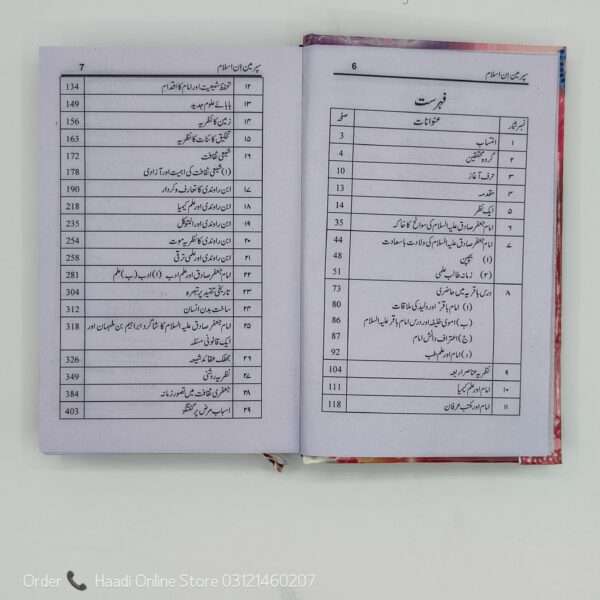 سپر مین اِن اسلام 6
فہرست
نمبر شمار عنوانات صفحہ
۱ انتساب 3
۲ گروہ محققین 4
۳ حرف آغاز 10
۴ مقدمہ 13
۵ ایک نظر 14
۶ امام جعفر صادق علیہ السلام کی سوانح کا خاکہ 35
۷ امام جعفر صادق علیہ السلام کی ولادت باسعادت 44
(۱) بچپن 48
(۲) زمانہ طالب علمی 51
۸ درس باقریہ میں حاضری 73
(ا) امام باقرؑ اور ولید کی ملاقات 80
(ب) اموی خلیفہ اور درس امام باقر علیہ السلام 86
(ج) اعتراف دانش امام 87
(د) امام اور علم طب 92
۹ نظریہ عناصر اربعہ 104
۱۰ امام اور علم کیمیا 111
۱۱ امام اور مکتب عرفان 118
سپر مین اِن اسلام 7
۱۲ تحفظ شیعیت اور امام کا اقدام 134
۱۳ بابائے علوم جدید 149
۱۴ زمین کا نظریہ 156
۱۵ تخلیق کائنات کا نظریہ 163
۱۶ شیعی ثقافت 172
(۱) شیعی ثقافت کی اہمیت اور آزادی 178
۱۷ ابن راوندی کا تعارف و کردار 190
۱۸ ابن راوندی اور علم کیمیا 218
۱۹ ابن راوندی اور المتوکل 235
۲۰ ابن راوندی کا نظریہ موت 254
۲۱ ابن راوندی اور علمی ترقی 258
۲۲ امام جعفر صادق اور علم ادب (ا) ادب (ب) علم 281
۲۳ تاریخی تنقید پر تبصرہ 304
۲۴ ساخت بدن انسان 312
۲۵ امام جعفر صادق علیہ السلام کا شاگرد ابراہیم بن طہمان اور 318
ایک قانونی مسئلہ
۲۶ جھلک عقائد شیعہ 326
۲۷ نظریہ روشنی 349
۲۸ جعفری ثقافت میں تصور زمانہ 384
۲۹ اسباب مرض پر گفتگو 403
Order Haadi Online Store 03121460207